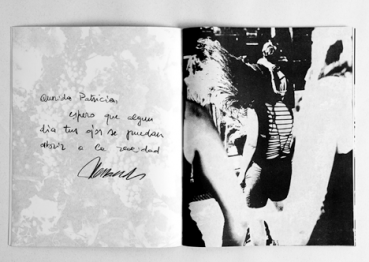 Querida Patricia:
espero que algun
dia tus ojos se puedan
abrir a la realidad